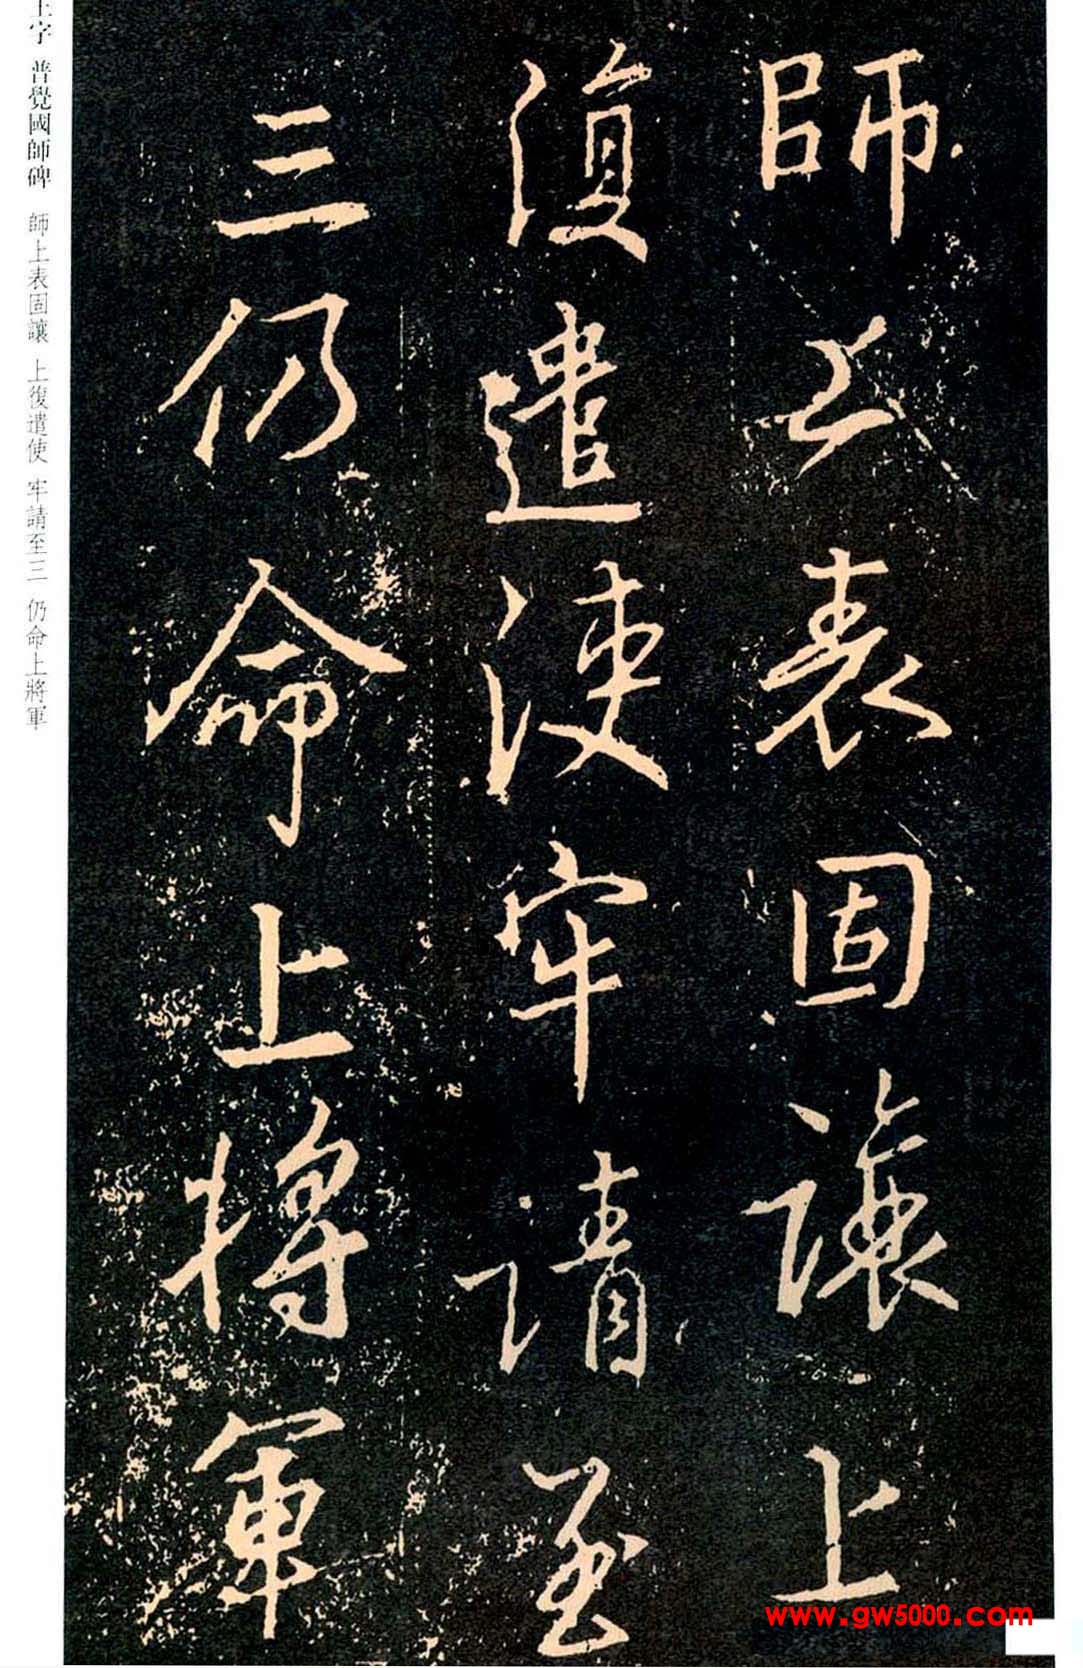 師上表固讓上
復遣使牢請至
三仍命上將軍
王字 普覺國師碑 師上表固讓 上復遣使 牢請至三 仍命上將軍
www.gw5000.com